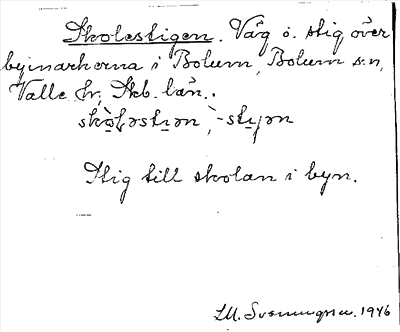 Skolestigen. Väg o. stig över
bymarkerna i Bolum, Bolum s:n,
Valle hr, Skb. län.
skò̤ləsti̤ən, -sti̤jən
Stig till skolan i byn.
1946